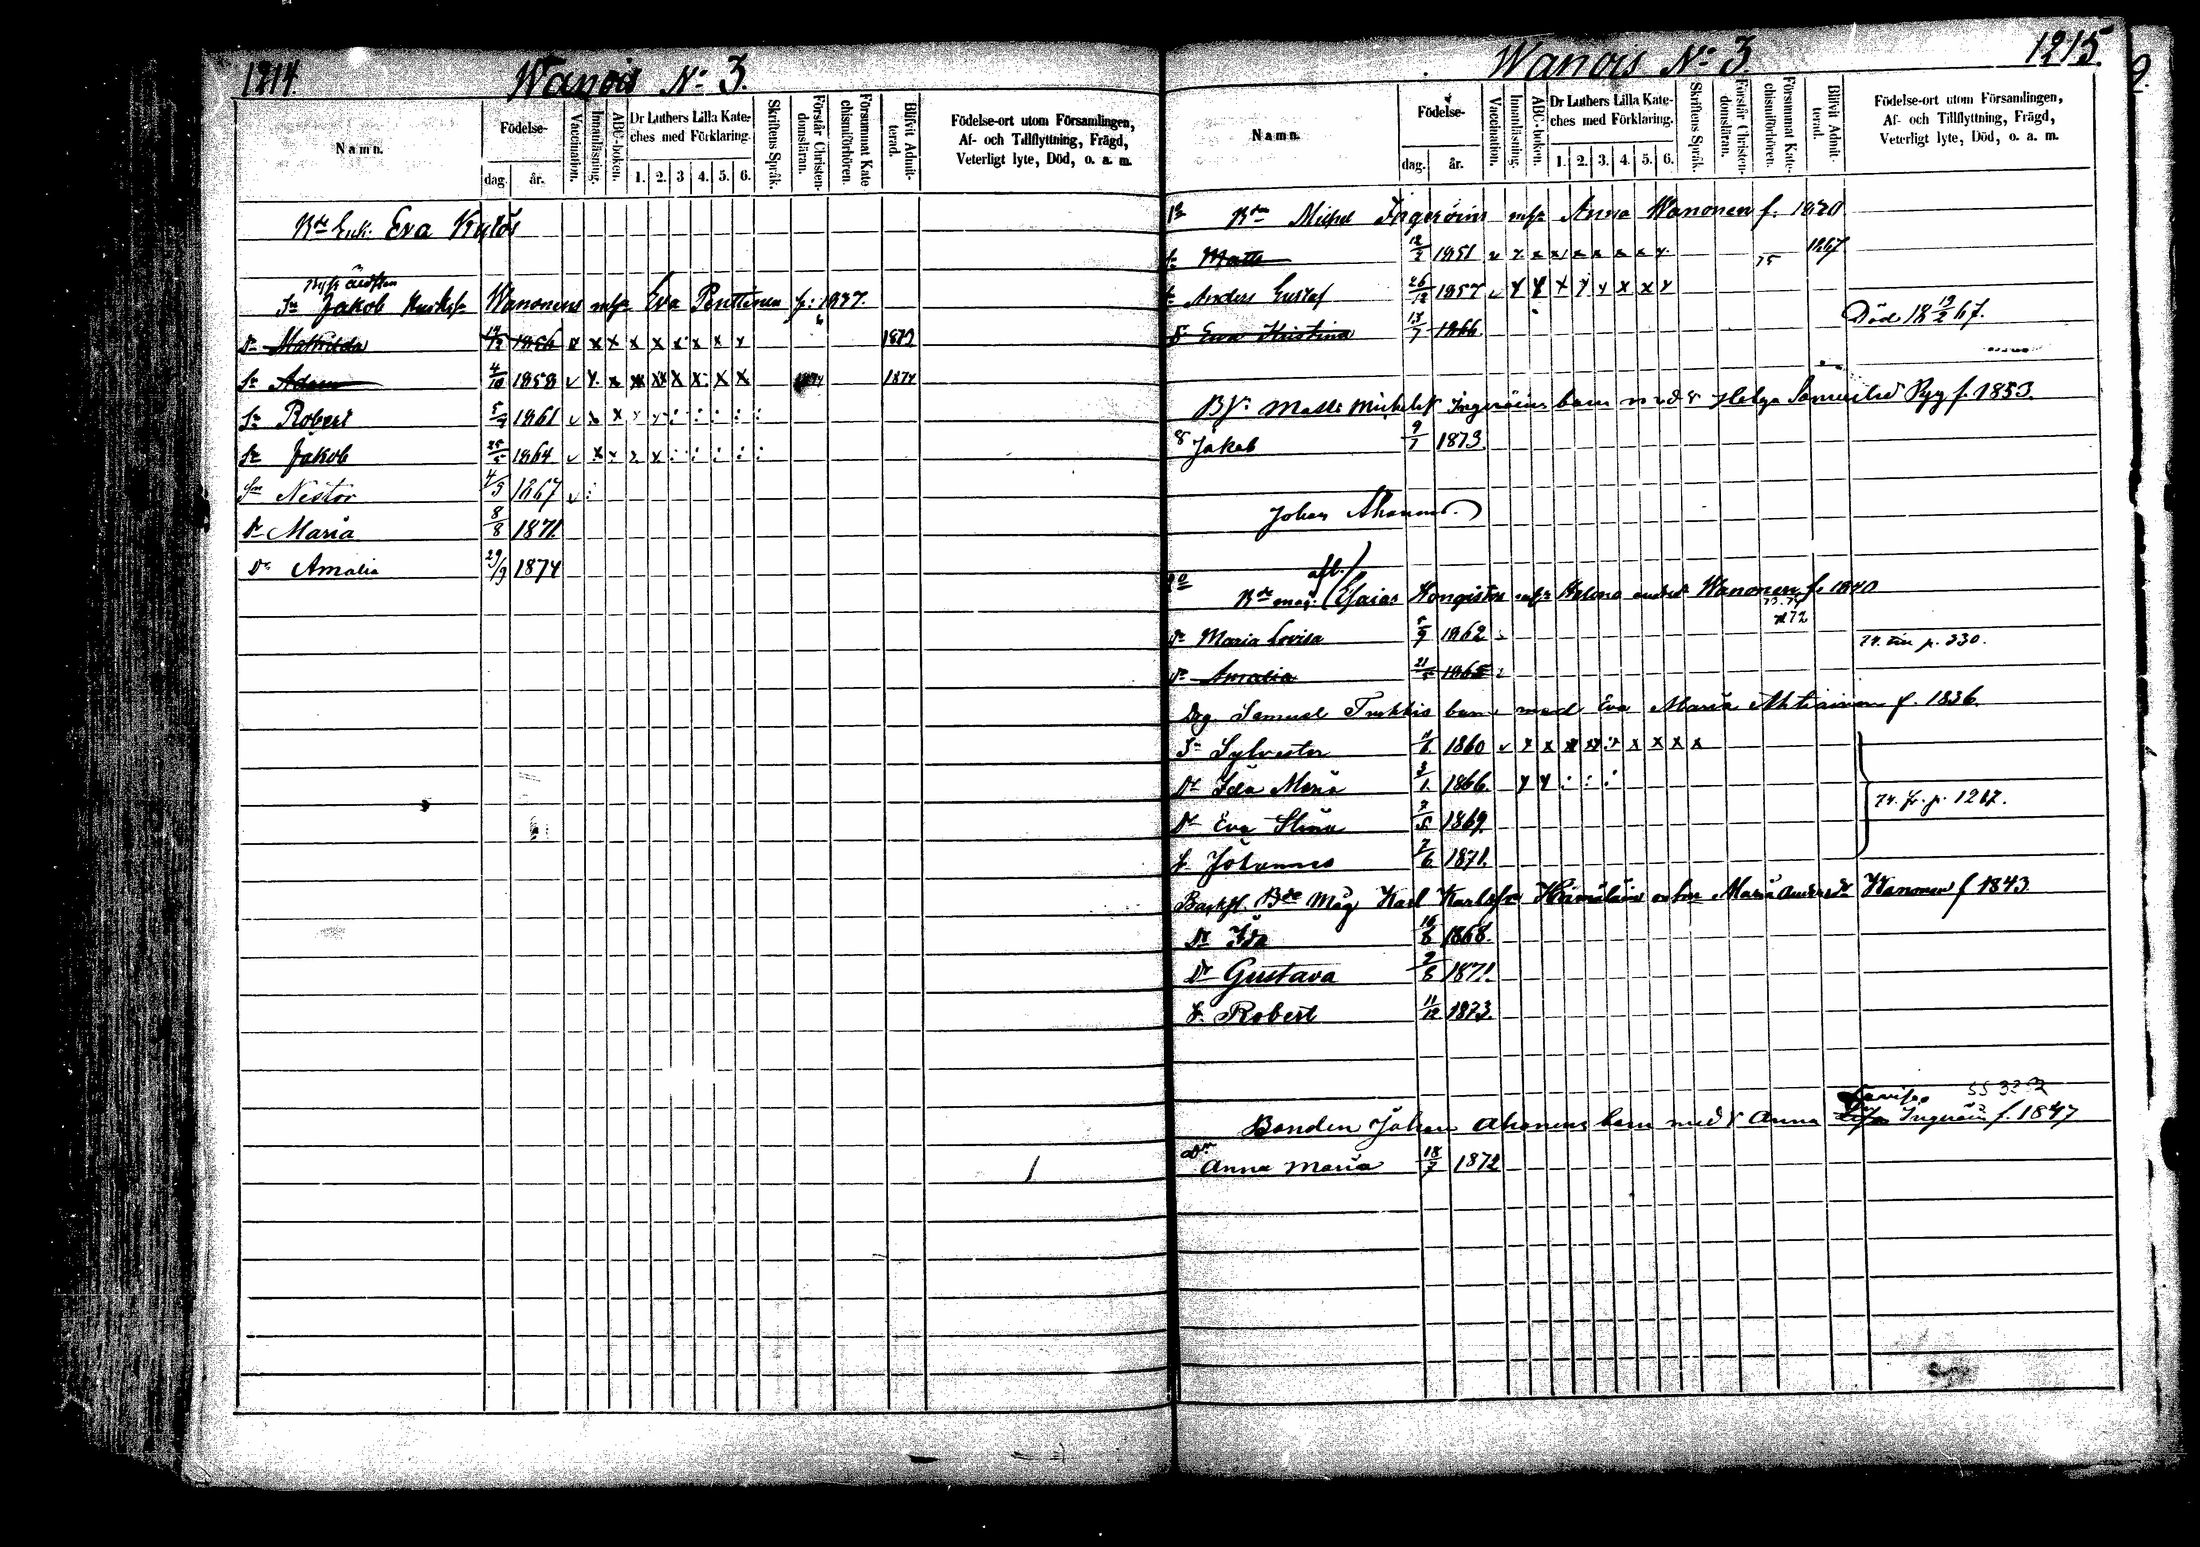 1214.
Wanois No 3.
Namn.
Födelse-
dag.
år.
Vaccination.
Innanläsning.
ABC-boken.
Dr Luthers Lilla Kate-
ches med Förklaring.
1. 2. 3 4. 5. 6.
Skriftens Språk.
Förstår Christen-
domsläran.
Försummat Kate
chismiförhören.
Blifvit Admit-
terad.
Födelse-ort utom Församlingen,
Af- och Tillflyttning, Frägd,
Veterligt lyte, Död, o. a. m.
Bde Enk: Eva Kylös
Sn Jakob Wanonens Eva Penttinen f: 1827.
Dr Mathilda 14/12 1856 v x x x x x x x x 1872
Sn Adam 4/10 1858 v x x x x x x x x 1874 1874
Sn Robert 5/7 1861 v x x x x : : : : :
Sn Jakob 25/5 1864 v x x x x : : : : :
Sn Nestor 4/5 1867 v :
Dr Maria 8/8 1871.
Dr Amalia 29/9 1874
Wanois No 3
1215.
Namn.
Födelse-
dag.
år.
Vaccination.
Innanläsning.
ABC-boken.
Dr Luthers Lilla Kate-
ches med Förklaring.
1. 2. 3. 4. 5. 6.
Skriftens Språk.
Förstår Christen-
domsläran.
Försummat Kate-
chismiförhören.
Blifvit Admit-
terad.
Födelse-ort utom Församlingen,
Af- och Tillflyttning, Frägd,
Veterligt lyte, Död, o. a. m.
Bden Michel Ingeröins Anna Wanonen f. 1820
Sn Matts 12/2 1851 v x x x x x x x x 75 1867
Sn Anders Gustaf 26/12 1857 v x x x x x x x x
Dr Eva Kristina 13/7 1866. Död 18 12/2 67.
Matts Ingeröins barn med Helga f. 1853.
S Jakob 9/1 1873.
Johan Ahonen.
afl.
Esaias Wanonen f. 1840
72
Dr Maria Lovisa 5/9 1862 74. p. 330.
Dr Amalia 21/5 1865
Samuel barn med Eva Maria Ahtiainen f. 1836.
Sn Sylvester 11/6 1860 v x x x x x x x x x
Dr Ida Maria 3/1 1866. x x : : :
Dr Eva Stina 7/5 1869 74. fr. p. 1267.
S. Johannes 7/6 1871.
Bde Måg Karl Karlsson Hämäläin Maria Wanonen f 1843.
Dr Ida 16/8 1868.
Dr Gustava 7/6 1871.
S. Robert 11/12 1873.
Lovisa
Bonden Johan Ahonens barn med Anna Ingeröin f. 1847
Dr Anna Maria 18/7 1872